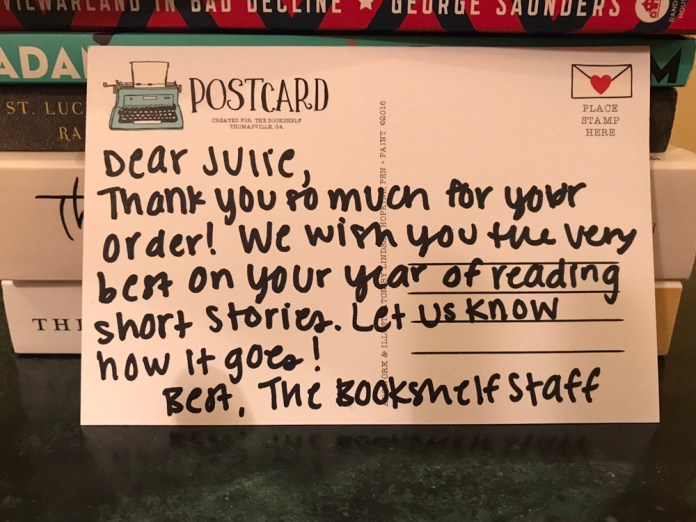 CIVILWARLAND IN BAD DECLINE ★ GEORGE SAUNDERS
ADA
M
ST. LUC
RA
Th
THI
POSTCARD
CREATED FOR THE BOOKSHELF
THOMASVILLE, GA
PLACE
STAMP
HERE
PEN + PAINT ©2016
Dear Julie,
Thank you so much for your
order! We wish you the very
best on your year of reading
short stories. Let us know
how it goes!
Best, The Bookshelf Staff